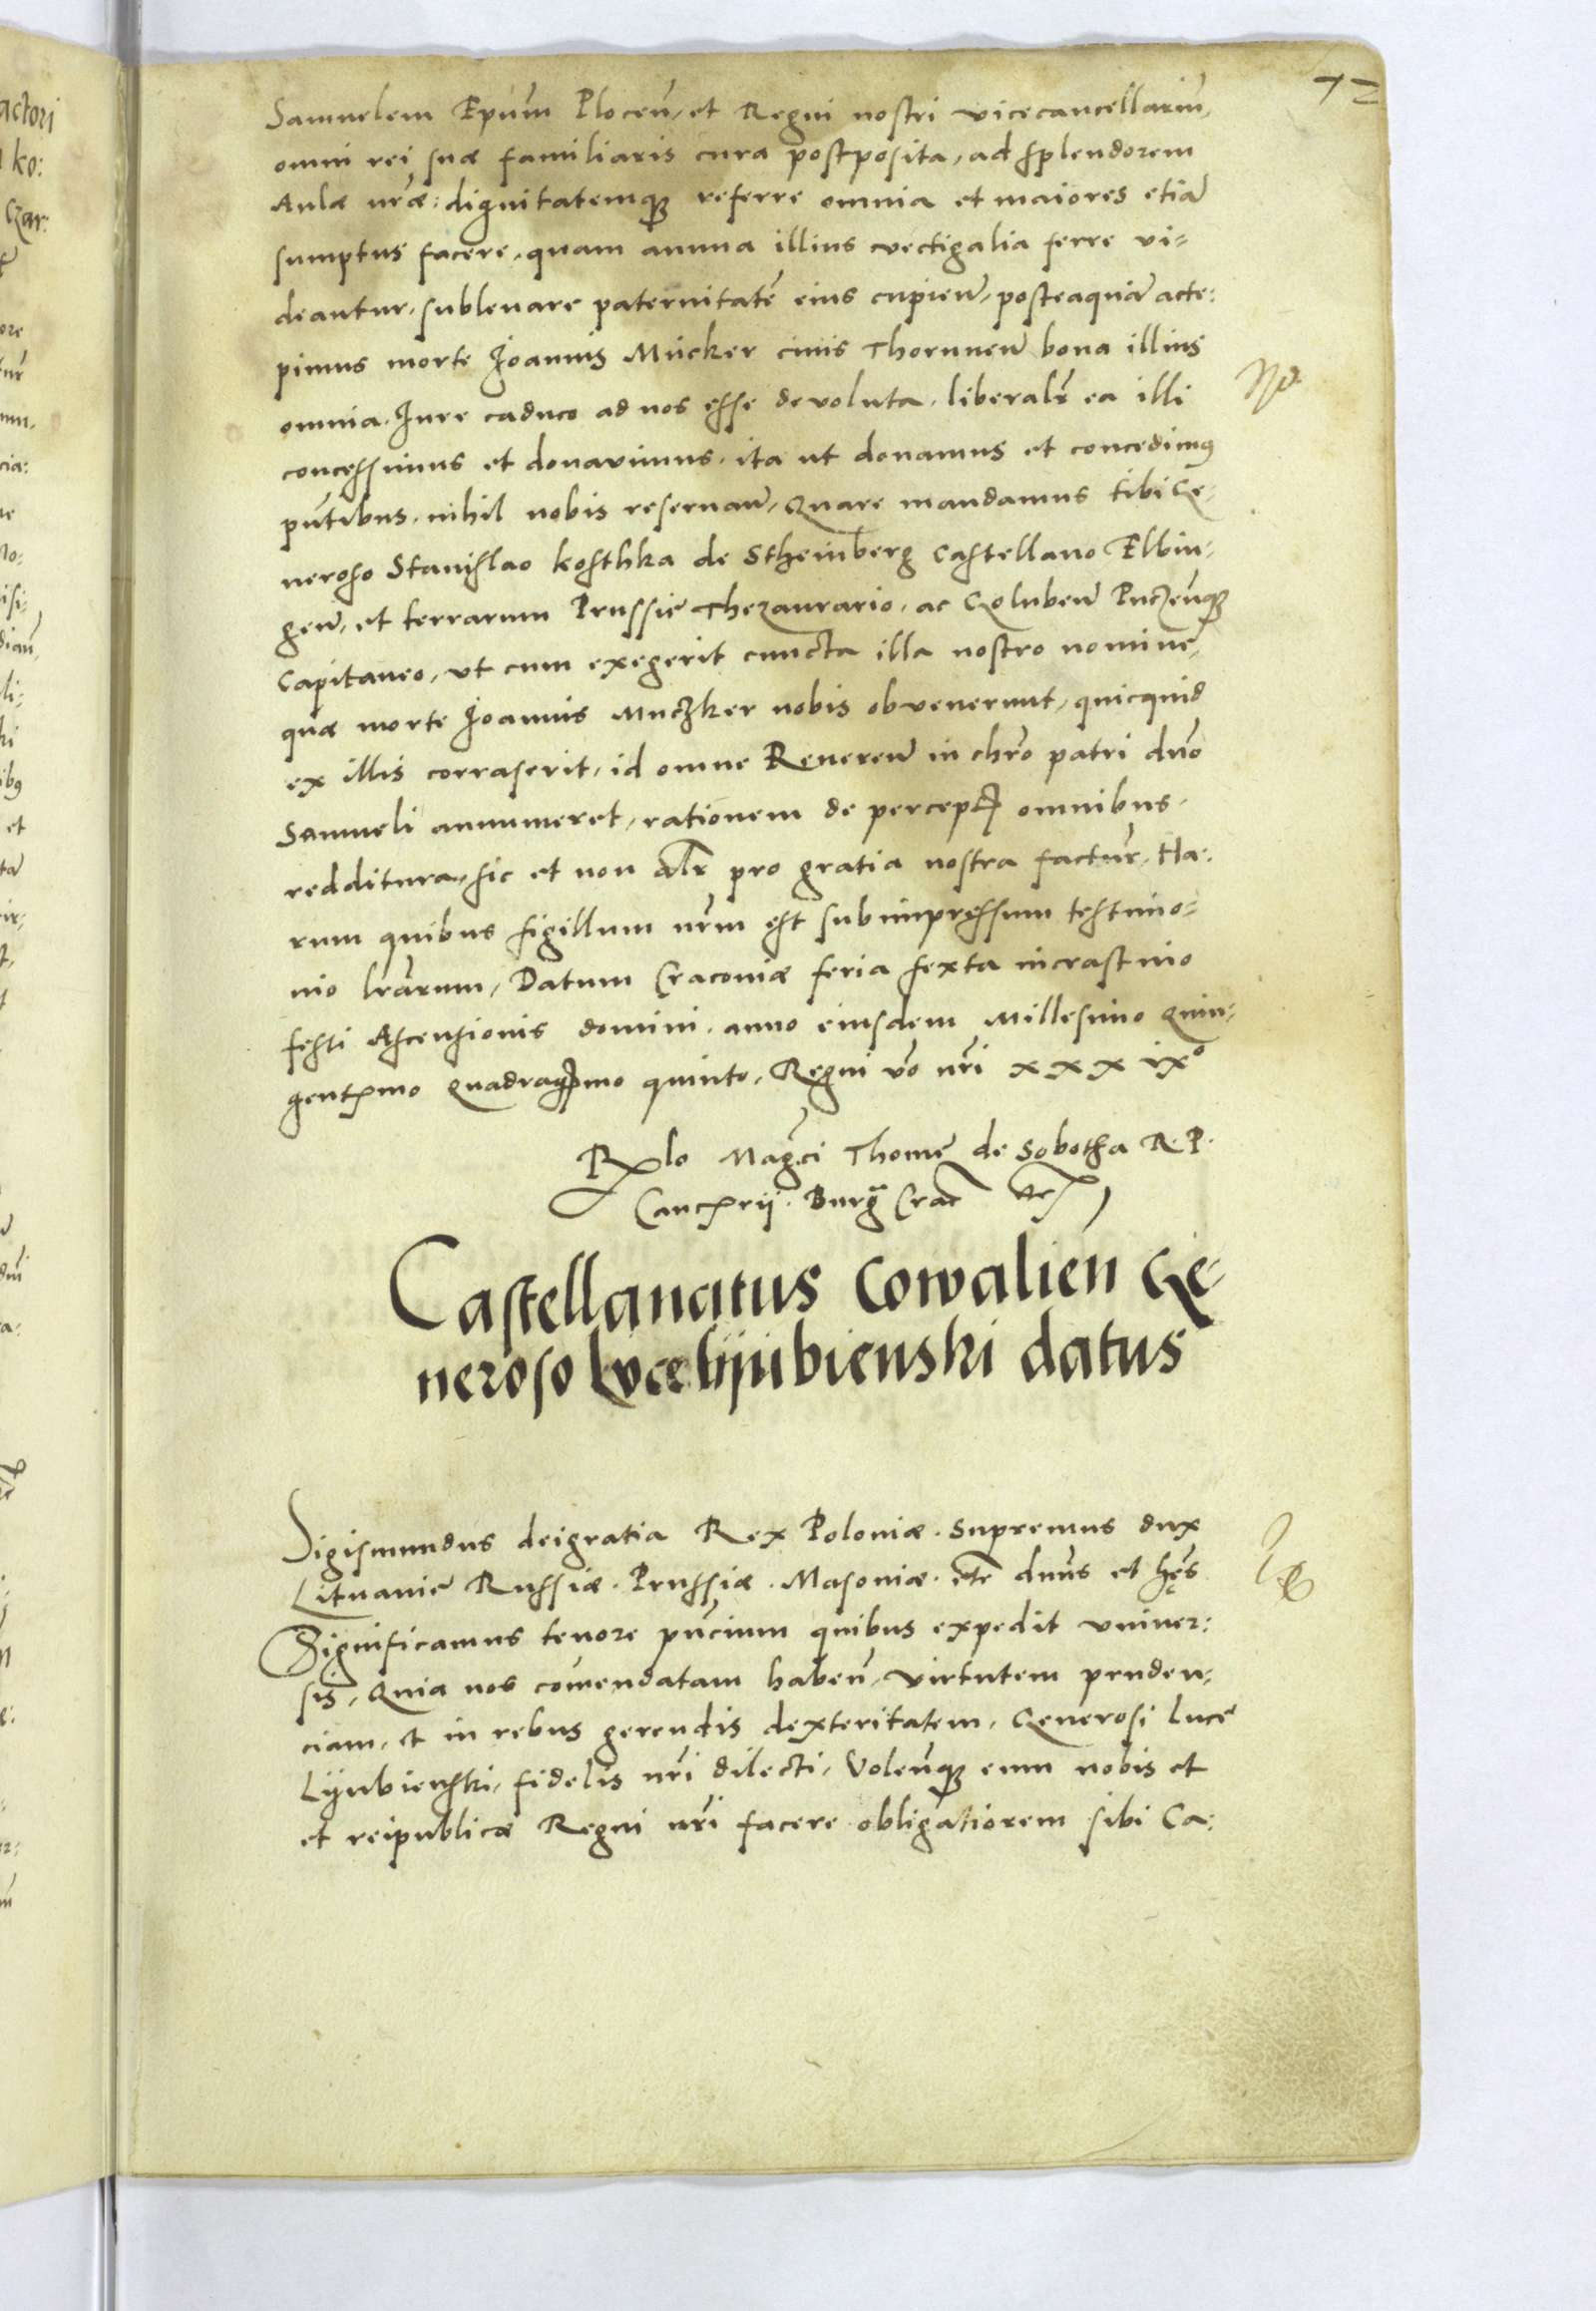 72
Samuelem Epum Plocen, et Regni nostri vicecancellariu,
omni rei suæ familiaris cura postposita, ad splendorem
Aulæ nræ: dignitatemq referre omnia et maiores etia
sumptus facere, quam annua illius vectigalia ferre vi-
deantur, subleuare paternitate eius cupien, posteaqua acce:
pimus morte Joannis Mucker ciuis Thorunen bona illius
omnia, Jure caduco ad nos esse devoluta, liberalr ea illi
concessimus et donavimus, ita ut donamus et concedimus
pntibus, nihil nobis reseruan, Quare mandamus tibi Ge-
neroso Stanislao kosthka de Stheinberg Castellano Elbin-
gen, et terrarum Prussie Thezaurario, ac Goluben Puczenq
Capitaneo, ut cum exegerit cuncta illa nostro nomine,
quæ morte Joannis Muczker nobis obvenerunt, quicquid
ex illis corraserit, id omne Reueren in chro patri dno
Samueli annumeret, rationem de percept omnibus,
redditura, sic et non alr pro gratia nostra factur, Ha:
rum quibus sigillum nrm est subimpressum testimo-
nio lrarum, Datum Cracoviæ feria sexta in crastino
festi Ascensionis domini, anno eiusdem Millesimo Quin-
gentmo quadragmo quinto, Regni vo nri xxx ix°
Rlo Magci Thome de Sobotha R. P.
Cancrii. Burg Crac etc
Castellanatus Cowalien Ge-
neroso Luce lijubienski datus
Sigismundus dei gratia Rex Poloniæ, Supremus dux
Lituanie Russiæ, Prussiæ, Masoviæ, etc dnus et hęs
Significamus tenore pncium quibus expedit univer:
sis, Quia nos comendatam haben, virtutem pruden-
ciam, et in rebus gerendis dexteritatem, Generosi Luce
Lijubienski, fidelis nri dilecti, Volenq eum nobis et
et reipublicæ Regni nri facere obligatiorem sibi Ca: